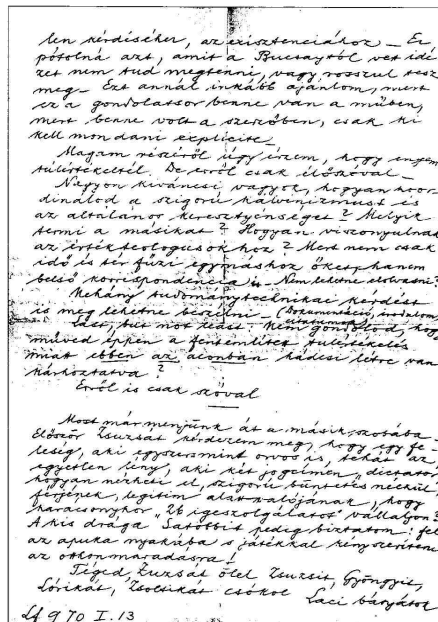 len kérdéséhez, az exisztenciához – Ez
pótolná azt, amit a Bucsaytól vett idé
zet nem tud megtenni, vagy rosszul tesz
meg – Ezt annál inkább ajánlom, mert
ez a gondolatsor benne van a műben,
mert benne volt a szerzőben, csak ki
kell mondani explicite –
Magam részéről úgy érzem, hogy engem
túlértékeltél. De erről csak élőszóval –
Nagyon kiváncsi vagyok, hogyan koor-
dinálod a szigorú kálvinizmust és
az általános keresztyénséget? Melyik
termi a másikat? Hogyan viszonyulnak
az értékteologusokhoz? Mert nem csak
idő és tér fűzi egymáshoz őket, hanem
belső korrispondencia is – Nem lehetne
Néhány tudománytechnikai kérdést
is meg lehetne beszélni – (Dokumentáció, irodalom,
Last, but not least: Nem gondolod, hogy
műved éppen a fentemlített túlértékelés
miatt ebben az aionban hádesi létre van
kárhoztatva?
Erről is csak szóval
Most már menjünk át a másik szobába –
Először Zsuzsát kérdezem meg, hogy egy fe-
leség, aki egyszersmint orvos is, tehát az
egyetlen lény, aki két jogcímen, dictator
hogyan nézheti el, szigorú büntetés nélkül
férjének, legitim alattvalójának, hogy
karácsonykor "26 igeszolgálatot" vállaljon?
A kis drága pedig biztatom: fel
az apuka nyakába s játékkal kényszeríteni
az otthonmaradásra!
Téged, Zsuzsát ölel, Zsuzsit, Gyöngyit,
Lórikát, Zsoltikát csókol Laci bátyátok
970 I. 13